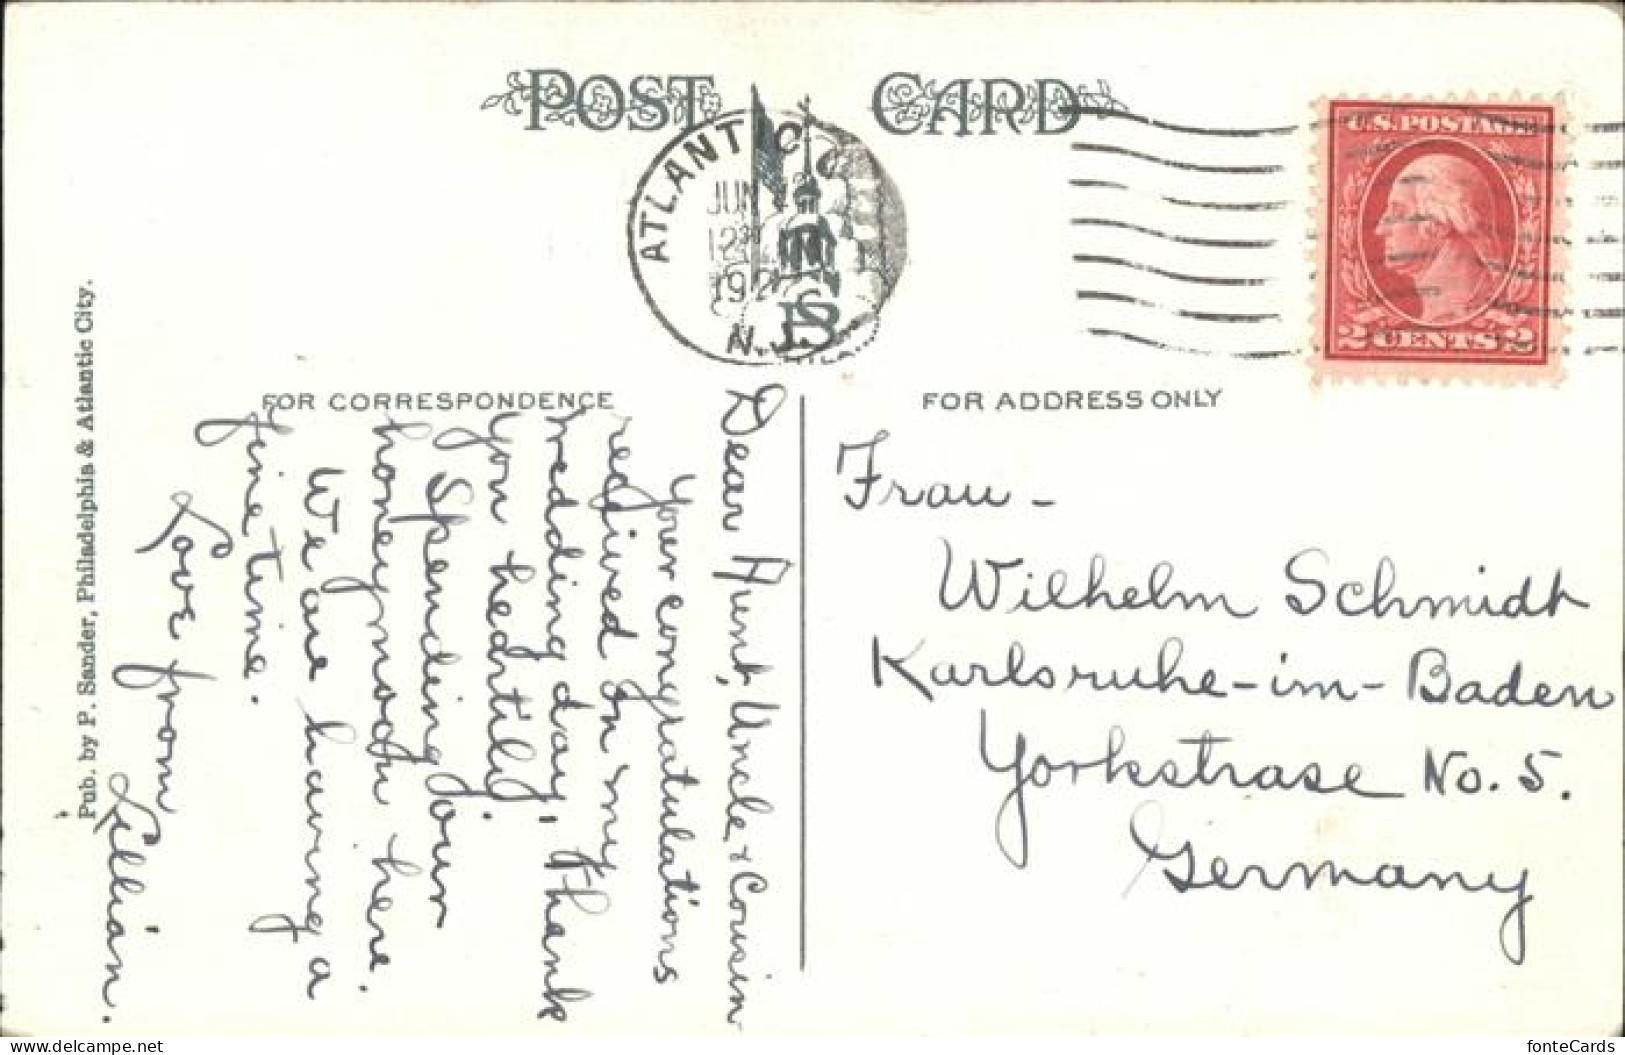 POST CARD
ATLANTIC C
JUN
12
192
N.J.
PS
U.S. POSTAGE
2 CENTS 2
FOR CORRESPONDENCE
FOR ADDRESS ONLY
Dear Aunt, Uncle, & Cousin
Your congratulations
received on my
wedding day, thank
you heartily.
Spending our
honeymoon here.
We are having a
fine time.
Love from
Lillian.
Frau -
Wilhelm Schmidt
Karlsruhe-im-Baden
Yorkstrase No. 5.
Germany
Pub. by P. Sander, Philadelphia & Atlantic City.
delcampe.net
fonteCards